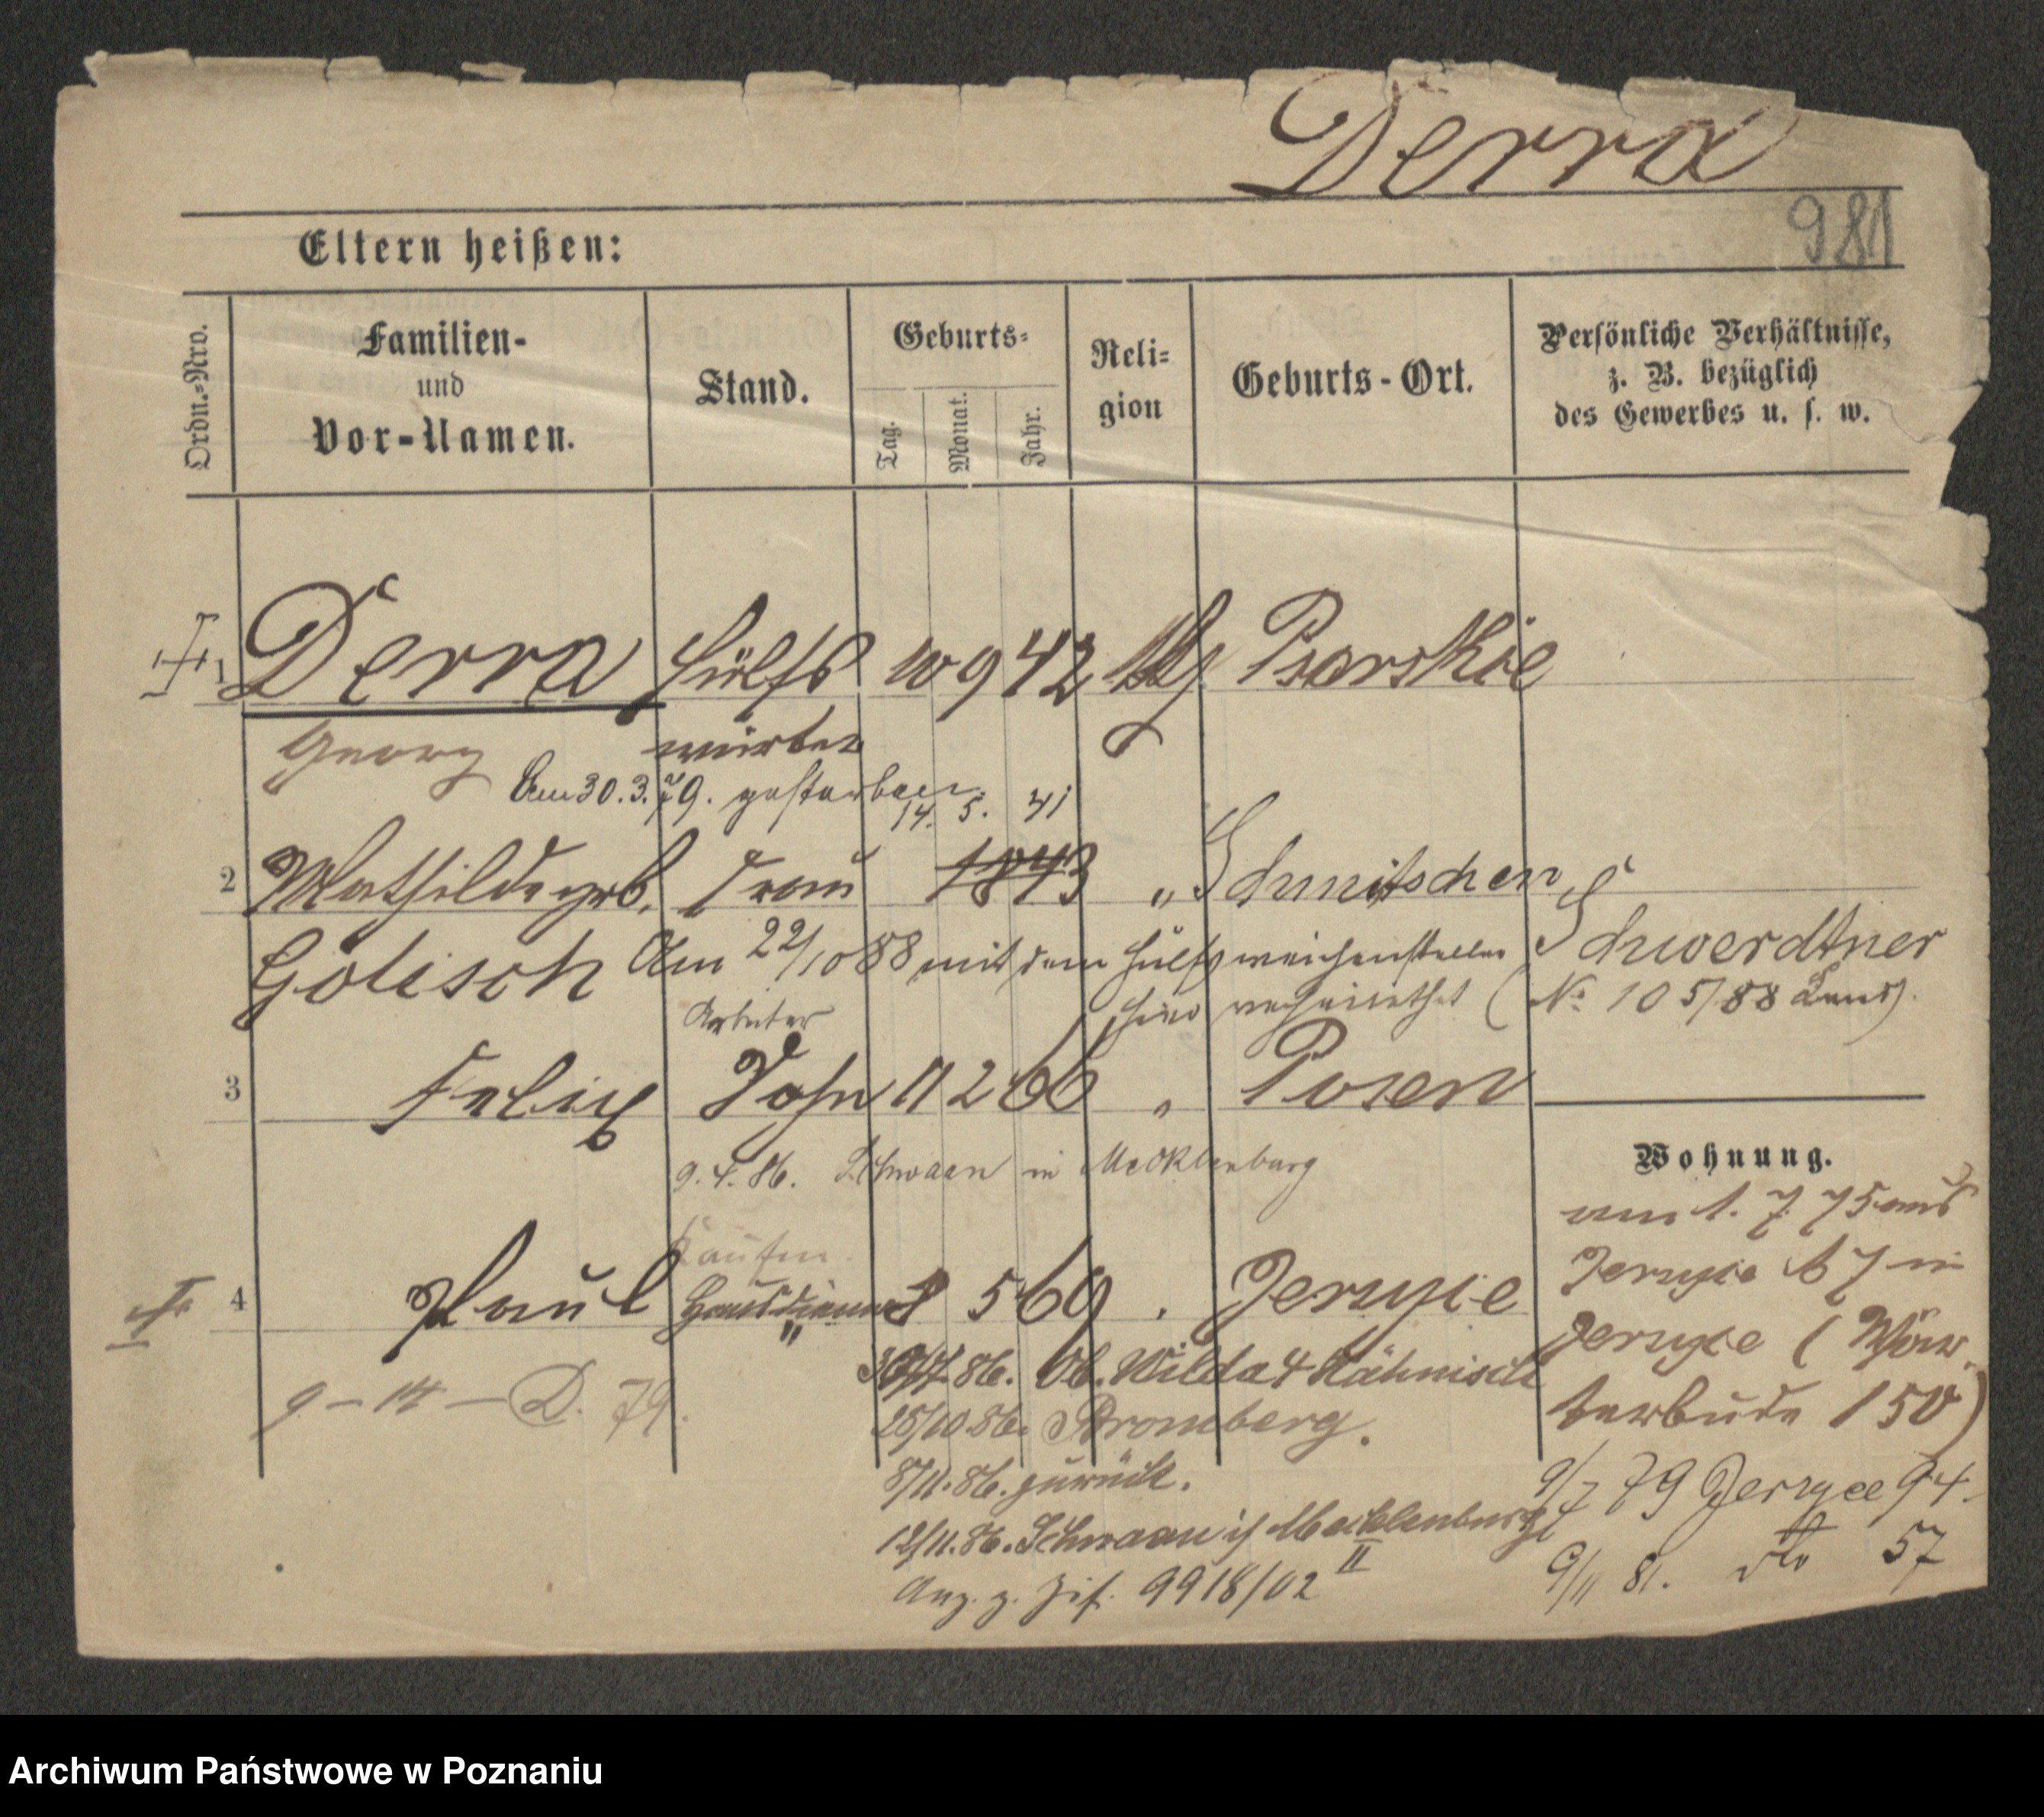 Derra
981
Eltern heißen:
Ordn.-Nro.
Familien-
und
Vor-Namen.
Stand.
Geburts-
Tag.
Monat.
Jahr.
Reli-
gion
Geburts-Ort.
Persönliche Verhältnisse,
z. B. bezüglich
des Gewerbes u. s. w.
1 Derra Hülfs 10 9 42 Psarskie
Georg wärter
Am 30.3.79. gestorben.
14. 5. 41
2 Mathilde geb. Frau 1843 " Schmitschen
Golisch Am 22/10 88 mit dem Hülfsweichensteller Schwerdtner
hier verheirathet (No 105/88 Land).
Arbeiter
3 Felix Sohn 11 2 66 " Posen
9. 4. 86. Schwaan in Mecklenburg
Wohnung.
am 1. 7. 75 aus
Jerzyce 67 in
Jerzyce (Wär-
terbude 150)
9/7 79 Jerzyce 94.
9/11 81. do 57
Kaufm.
4 Paul Hausdiener 8 5 69 Jerzyce
86. Ob. Wilda 4 Hähnisch
25/10 86. Bromberg.
8/11. 86. zurück.
12/11. 86. Schwaan i/ Mecklenburg
II
Anz. z. Zif. 9918/02
9 – 14 – D. 79.
Archiwum Państwowe w Poznaniu